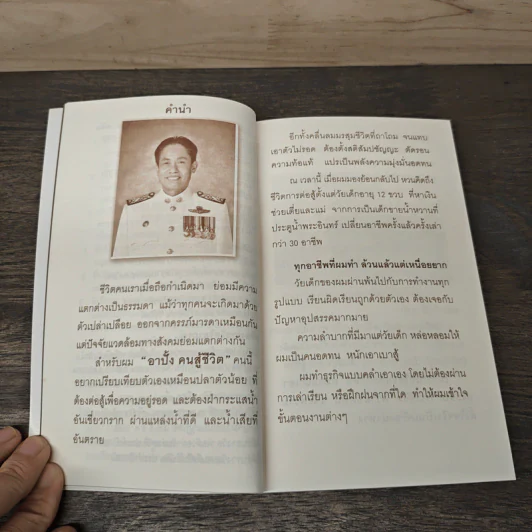 คำนำ
ชีวิตคนเราเมื่อถือกำเนิดมา ย่อมมีความ
แตกต่างเป็นธรรมดา แม้ว่าทุกคนจะเกิดมาด้วย
ตัวเปล่าเปลือย ออกจากครรภ์มารดาเหมือนกัน
แต่ปัจจัยแวดล้อมทางสังคมย่อมแตกต่างกัน
สำหรับผม "อาบั้ง คนสู้ชีวิต" คนนี้
อยากเปรียบเทียบตัวเองเหมือนปลาตัวน้อย ที่
ต้องต่อสู้เพื่อความอยู่รอด และต้องฝ่ากระแสน้ำ
อันเชี่ยวกราก ผ่านแหล่งน้ำที่ดี และน้ำเสียที่
อันตราย
อีกทั้งคลื่นลมมรสุมชีวิตที่ถาโถม จนแทบ
เอาตัวไม่รอด ต้องตั้งสติสัมปชัญญะ ตัดรอน
ความท้อแท้ แปรเป็นพลังความมุ่งมั่นอดทน
ณ เวลานี้ เมื่อผมมองย้อนกลับไป หวนคิดถึง
ชีวิตการต่อสู้ตั้งแต่วัยเด็กอายุ 12 ขวบ ที่หาเงิน
ช่วยเตี่ยและแม่ จากการเป็นเด็กขายน้ำหวานที่
ประตูน้ำพระอินทร์ เปลี่ยนอาชีพครั้งแล้วครั้งเล่า
กว่า 30 อาชีพ
ทุกอาชีพที่ผมทำ ล้วนแล้วแต่เหนื่อยยาก
วัยเด็กของผมผ่านพ้นไปกับการทำงานทุก
รูปแบบ เรียนผิดเรียนถูกด้วยตัวเอง ต้องเจอกับ
ปัญหาอุปสรรคมากมาย
ความลำบากที่มีมาแต่วัยเด็ก หล่อหลอมให้
ผมเป็นคนอดทน หนักเอาเบาสู้
ผมทำธุรกิจแบบคลำเอาเอง โดยไม่ต้องผ่าน
การเล่าเรียน หรือฝึกฝนจากที่ใด ทำให้ผมเข้าใจ
ขั้นตอนงานต่างๆ